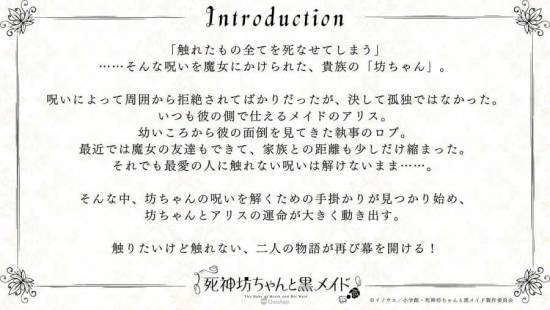 Introduction
「触れたもの全てを死なせてしまう」
……そんな呪いを魔女にかけられた、貴族の「坊ちゃん」。
呪いによって周囲から拒絶されてばかりだったが、決して孤独ではなかった。
いつも彼の側で仕えるメイドのアリス。
幼いころから彼の面倒を見てきた執事のロブ。
最近では魔女の友達もできて、家族との距離も少しだけ縮まった。
それでも最愛の人に触れない呪いは解けないまま……。
そんな中、坊ちゃんの呪いを解くための手掛かりが見つかり始め、
坊ちゃんとアリスの運命が大きく動き出す。
触りたいけど触れない、二人の物語が再び幕を開ける！
死神坊ちゃんと黒メイド
The Duke of Death and His Maid
©イノウエ／小学館・死神坊ちゃんと黒メイド製作委員会